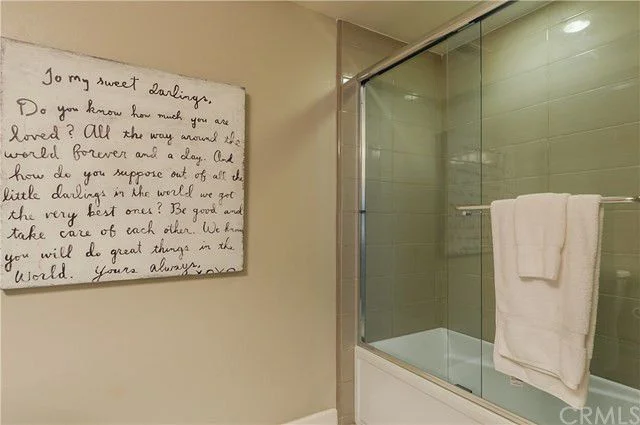 To my sweet darlings,
Do you know how much you are
loved? All the way around the
world forever and a day. And
how do you suppose out of all the
little darlings in the world we got
the very best ones? Be good and
take care of each other. We know
you will do great things in the
World. Yours always, XOXO
CRMLS